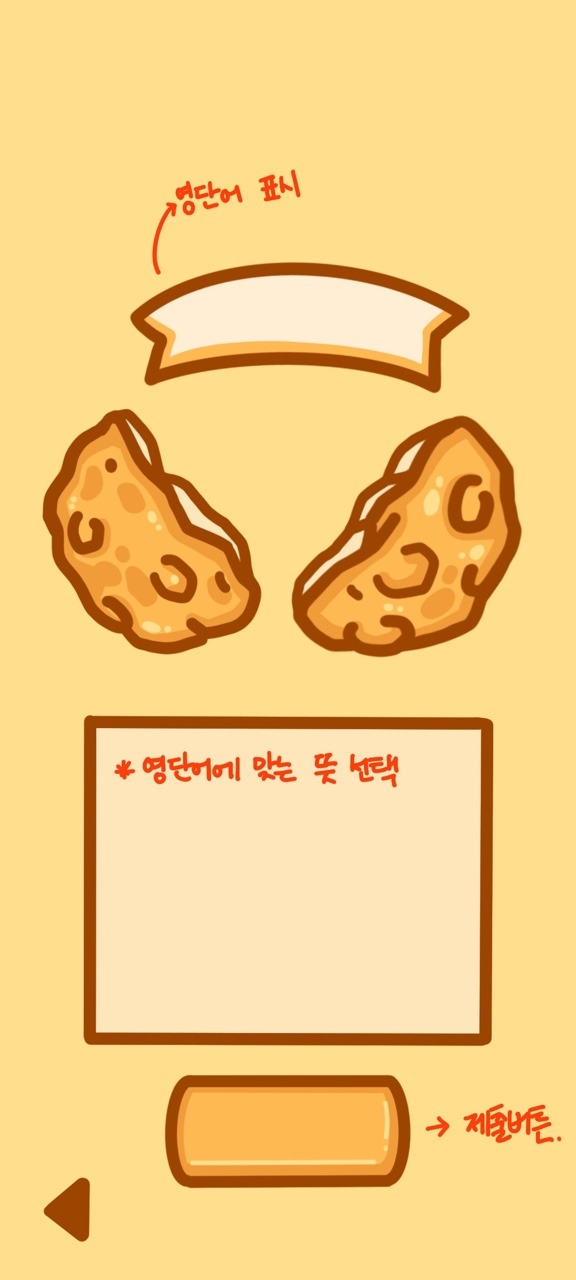 영단어 표시
* 영단어에 맞는 뜻 선택
→ 제출버튼.